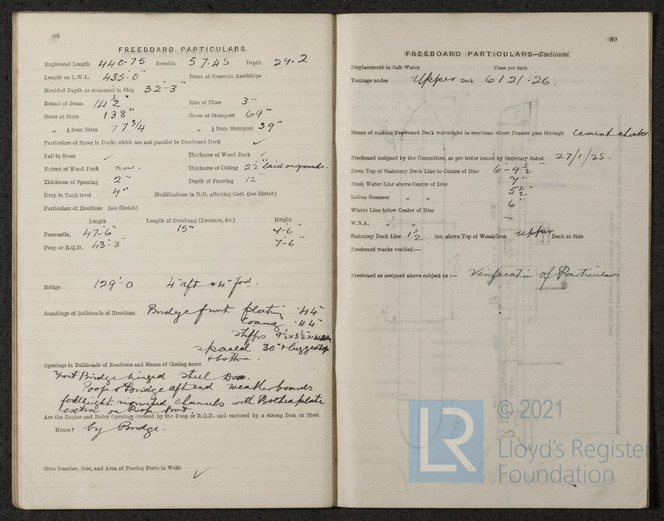 88
FREEBOARD PARTICULARS.
Registered Length 440.75 Breadth 57.45 Depth 29.2
Length on L.W.L. 435'-0" Beam at Gunwale Amidships
Moulded Depth as measured in Ship 32'-3"
Round of Beam 14½" Rise of Floor 3"
Sheer at Stem 138" Sheer at Sternpost 69"
" ⅛ from Stem 77¾ " ⅛ from Sternpost 39"
Particulars of Sheer in Decks which are not parallel to Freeboard Deck ✓
Fall in Sheer ✓ Thickness of Wood Deck ✓
Extent of Wood Deck none. Thickness of Ceiling 2½" laid on grounds.
Thickness of Sparring 2" Depth of Framing 12"
Drop in Tank level 4" Modifications in D.B. affecting Coef. (see Sketch)
Particulars of Erections (see Sketch)
Length Length of Overhang (Recesses, &c.) Height
Forecastle, 47'-6" 15" 7'-6"
Poop or R.Q.D. 43'-3" 7'-6
Bridge 129'-0 4" aft & 4" ford.
Scantlings of Bulkheads of Erections Bridge front plating .44"
.44"
stiffrs 9½ x 3½ x
spaced 30" & lugged top
& bottom.
Openings in Bulkheads of Erections and Means of Closing same
Front Bridge hinged steel Door.
Poop & Bridge aft end weatherboards
fitted in riveted channels with
extra on Poop front.
Are the Engine and Boiler Openings covered by the Poop or R.Q.D. and enclosed by a strong Iron or Steel
House? by Bridge.
Give Number, Size, and Area of Freeing Ports in Wells ✓
89
FREEBOARD PARTICULARS—Continued.
Displacement in Salt Water Tons per inch
Tonnage under Upper Deck 6121.26.
Means of making Freeboard Deck watertight in erections where Frames pass through Cement chocks
Freeboard assigned by the Committee, as per letter issued by Secretary dated 27/1/25.
From Top of Statutory Deck Line to Centre of Disc 6'-9½"
Fresh Water Line above Centre of Disc 7"
Indian Summer " " 5½"
Winter Line below Centre of Disc 6"
W.N.A. " "
Statutory Deck Line 1½ ins. above Top of Wood/Iron Upper Deck at Side
Freeboard marks verified:—
Freeboard as assigned above subject to:— Verification of Particulars
LR
© 2021
Lloyd's Register
Foundation